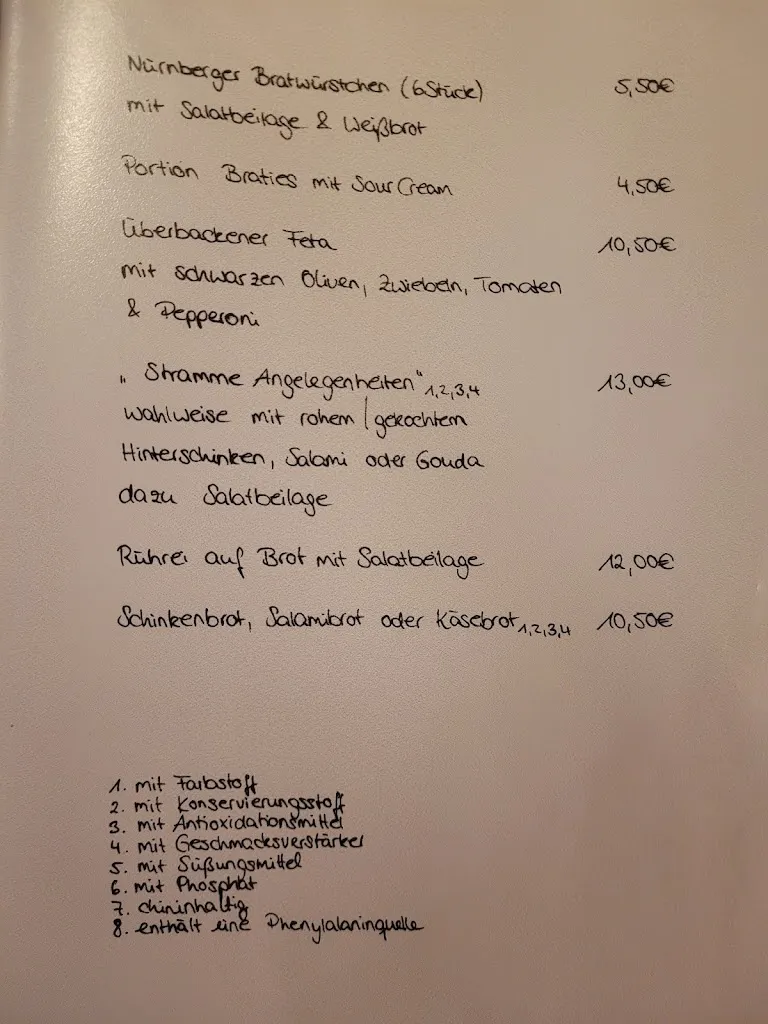 Nürnberger Bratwürstchen (6 Stück) 5,50€
mit Salatbeilage & Weißbrot
Portion Braties mit Sour Cream 4,50€
Überbackener Feta 10,50€
mit schwarzen Oliven, Zwiebeln, Tomaten
& Pepperoni
„Stramme Angelegenheiten" 1,2,3,4 13,00€
wahlweise mit rohem / gekochtem
Hinterschinken, Salami oder Gouda
dazu Salatbeilage
Rührei auf Brot mit Salatbeilage 12,00€
Schinkenbrot, Salamibrot oder Käsebrot 1,2,3,4 10,50€
1. mit Farbstoff
2. mit Konservierungsstoff
3. mit Antioxidationsmittel
4. mit Geschmacksverstärker
5. mit Süßungsmittel
6. mit Phosphat
7. chininhaltig
8. enthält eine Phenylalaninquelle